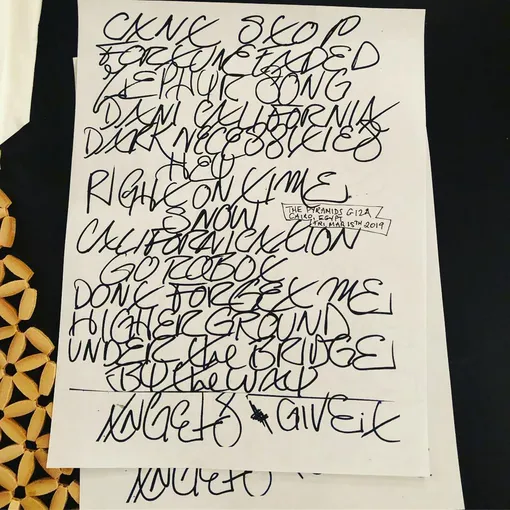 CAN'T STOP
FORTUNE FADED
ZEPHYR SONG
DANI CALIFORNIA
DARK NECESSITIES
HEY
RIGHT ON TIME
SNOW
THE PYRAMIDS GIZA
CAIRO, EGYPT
FRI. MAR 15TH 2019
CALIFORNICATION
GO ROBOT
DONT FORGET ME
HIGHER GROUND
UNDER the BRIDGE
BY the WAY
ANGELS * GIVE iT
ANGELS